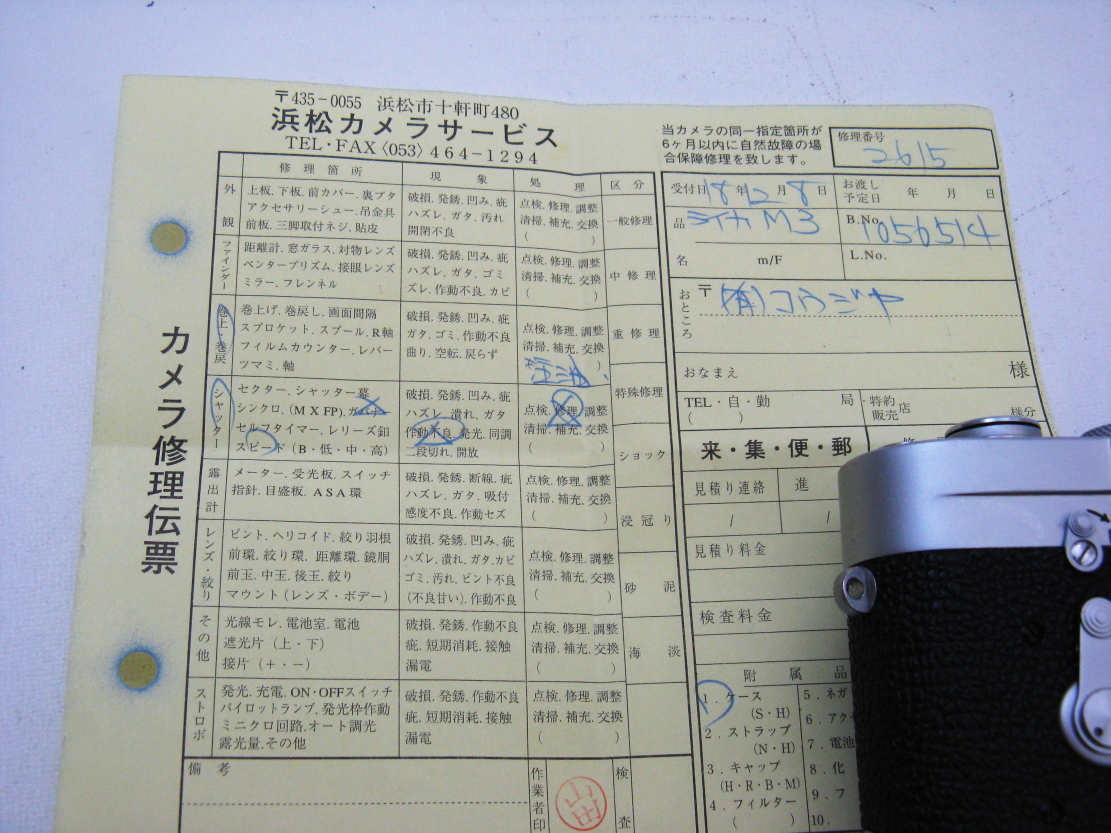 〒435-0055 浜松市十軒町480
浜松カメラサービス
TEL・FAX〈053〉464-1294
当カメラの同一指定箇所が
6ヶ月以内に自然故障の場
合保障修理を致します。
修理番号
2615
カメラ修理伝票
修理箇所 現象 処理 区分
外観
上板、下板、前カバー、裏ブタ
アクセサリーシュー、吊金具
前板、三脚取付ネジ、貼皮
破損、発銹、凹み、疵
ハズレ、ガタ、汚れ
開閉不良
点検、修理、調整
清掃、補充、交換
( )
一般修理
ファインダー
距離計、窓ガラス、対物レンズ
ペンタープリズム、接眼レンズ
ミラー、フレンネル
破損、発銹、凹み、疵
ハズレ、ガタ、ゴミ
ズレ、作動不良、カビ
点検、修理、調整
清掃、補充、交換
( )
中修理
巻上・巻戻
巻上げ、巻戻し、画面間隔
スプロケット、スプール、R軸
フィルムカウンター、レバー
ツマミ、軸
破損、発銹、凹み、疵
ガタ、ゴミ、作動不良
曲り、空転、戻らず
点検、修理、調整
清掃、補充、交換
注油
重修理
シャッター
セクター、シャッター幕
シンクロ、(MXFP)、ガバナー
セルフタイマー、レリーズ釦
スピード(B・低・中・高)
破損、発銹、凹み、疵
ハズレ、潰れ、ガタ
作動不良、発光、同調
二段切れ、開放
点検、修理、調整
清掃、補充、交換
( )
特殊修理
ショック
露出計
メーター、受光板、スイッチ
指針、目盛板、ASA環
破損、発銹、断線、疵
ハズレ、ガタ、吸付
感度不良、作動セズ
点検、修理、調整
清掃、補充、交換
( )
浸冠り
レンズ・絞り
ピント、ヘリコイド、絞り羽根
前環、絞り環、距離環、鏡胴
前玉、中玉、後玉、絞り
マウント(レンズ・ボデー)
破損、発銹、凹み、疵
ハズレ、潰れ、ガタ、カビ
ゴミ、汚れ、ピント不良
(不良甘い)、作動不良
点検、修理、調整
清掃、補充、交換
( )
砂泥
その他
光線モレ、電池室、電池
遮光片(上・下)
接片(+・-)
破損、発銹、作動不良
疵、短期消耗、接触
漏電
点検、修理、調整
清掃、補充、交換
( )
海淡
ストロボ
発光、充電、ON・OFFスイッチ
パイロットランプ、発光枠作動
ミニクロ回路、オート調光
露光量、その他
破損、発銹、作動不良
疵、短期消耗、接触
漏電
点検、修理、調整
清掃、補充、交換
( )
備考
作業者印
検査
受付日 18年12月8日
お渡し予定日 年 月 日
品名 ライカM3
m/F
B.No. 1056514
L.No.
おところ 〒 (有)コウジヤ
おなまえ 様
TEL・自・勤 局
( )
特約販売店 様分
来・集・便・郵
見積り連絡 進
/ /
見積り料金
検査料金
附属品
1.ケース
(S・H)
2.ストラップ
(N・H)
3.キャップ
(H・R・B・M)
4.フィルター
( )
5.ネガ
6.アク
7.電池
8.化
9.フ
10.